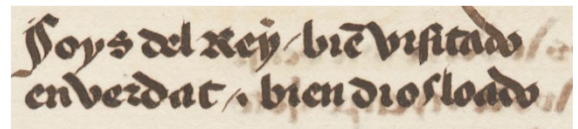 Soys del Rey / biē visitado
en verdat / . bien dios loado